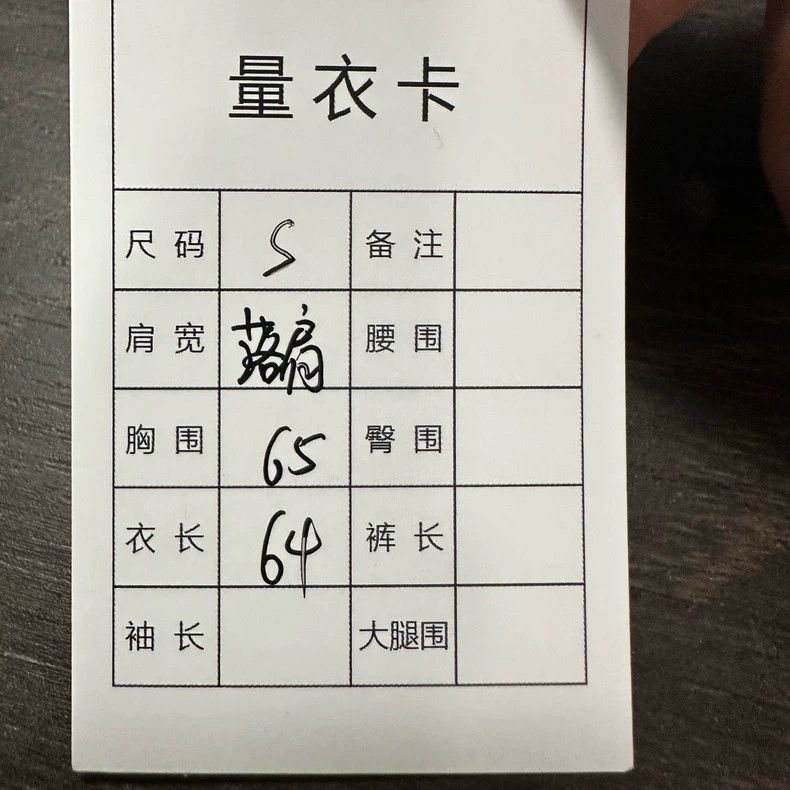 量衣卡
尺码 S 备注
肩宽 落肩 腰围
胸围 65 臀围
衣长 64 裤长
袖长 大腿围